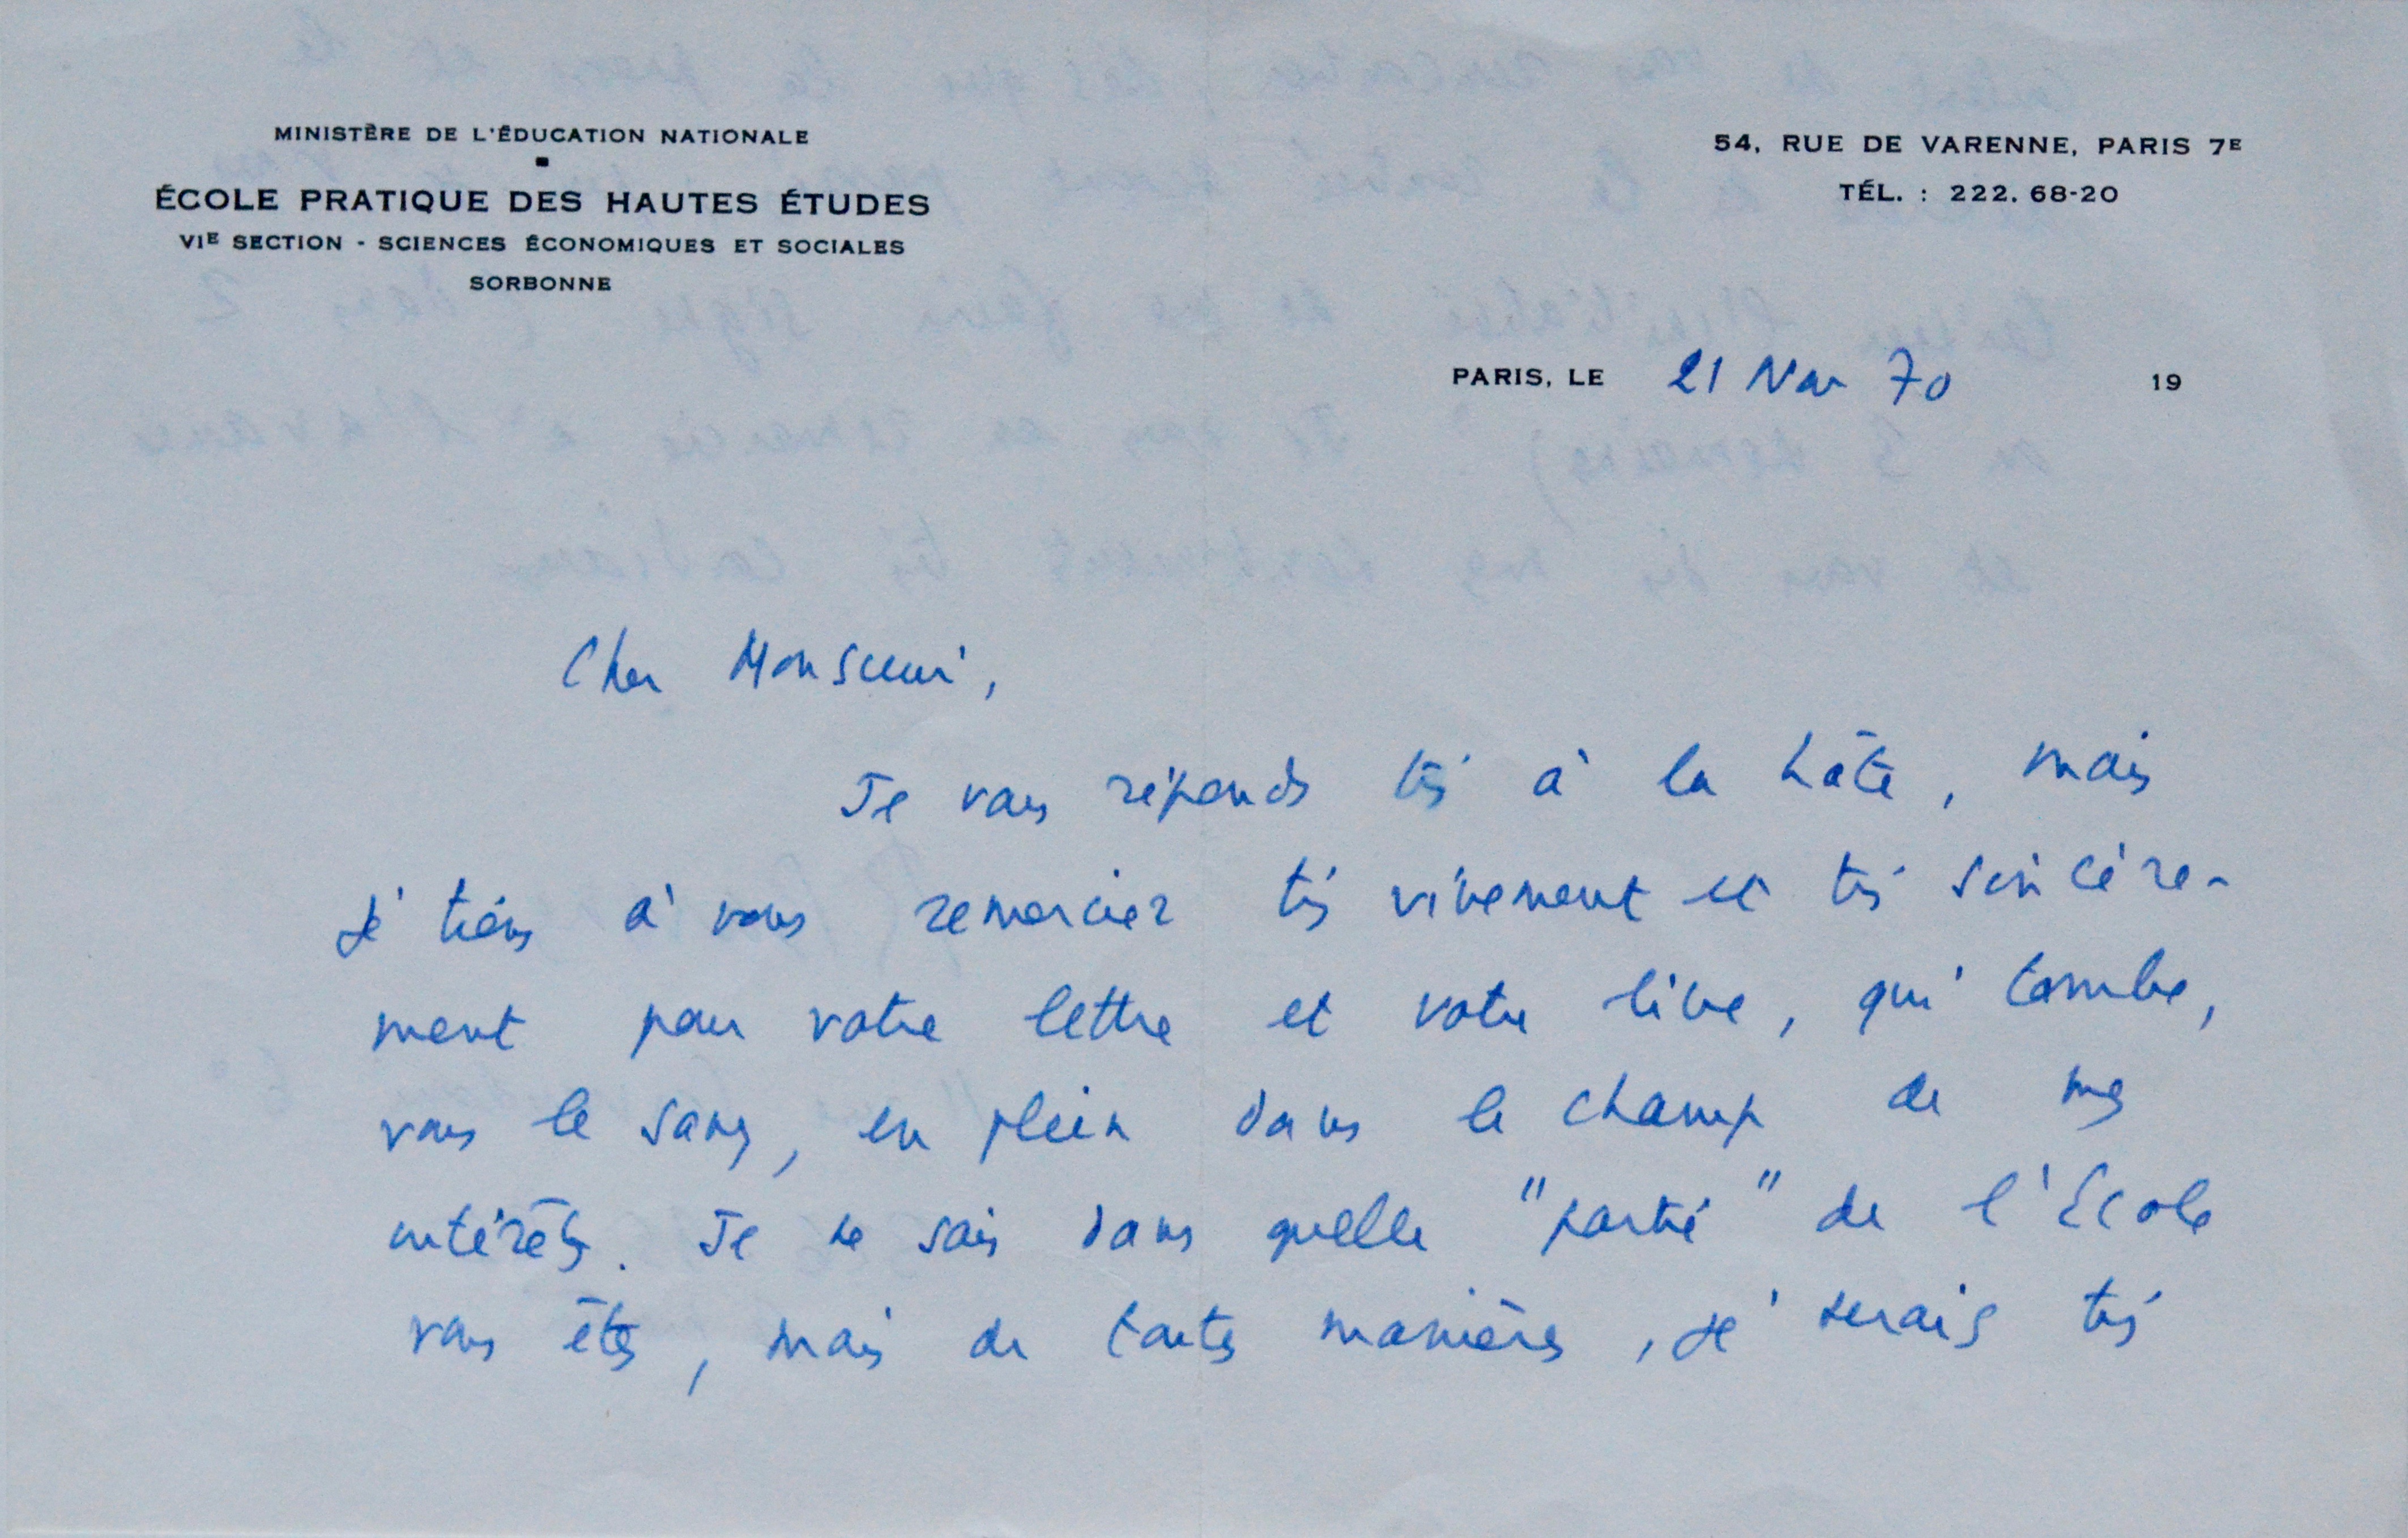 MINISTÈRE DE L'ÉDUCATION NATIONALE
ÉCOLE PRATIQUE DES HAUTES ÉTUDES
VIE SECTION - SCIENCES ÉCONOMIQUES ET SOCIALES
SORBONNE
54, RUE DE VARENNE, PARIS 7E
TÉL. : 222. 68-20
PARIS, LE 21 Nov 70 19
Cher Monsieur,
Je vous réponds très à la hâte, mais
je tiens à vous remercier très vivement et très sincère-
ment pour votre lettre et votre livre, qui tombe,
vous le savez, en plein dans le champ de mes
intérêts. Je ne sais dans quelle "partie" de l'École
vous êtes, mais de toutes manières, je serais très